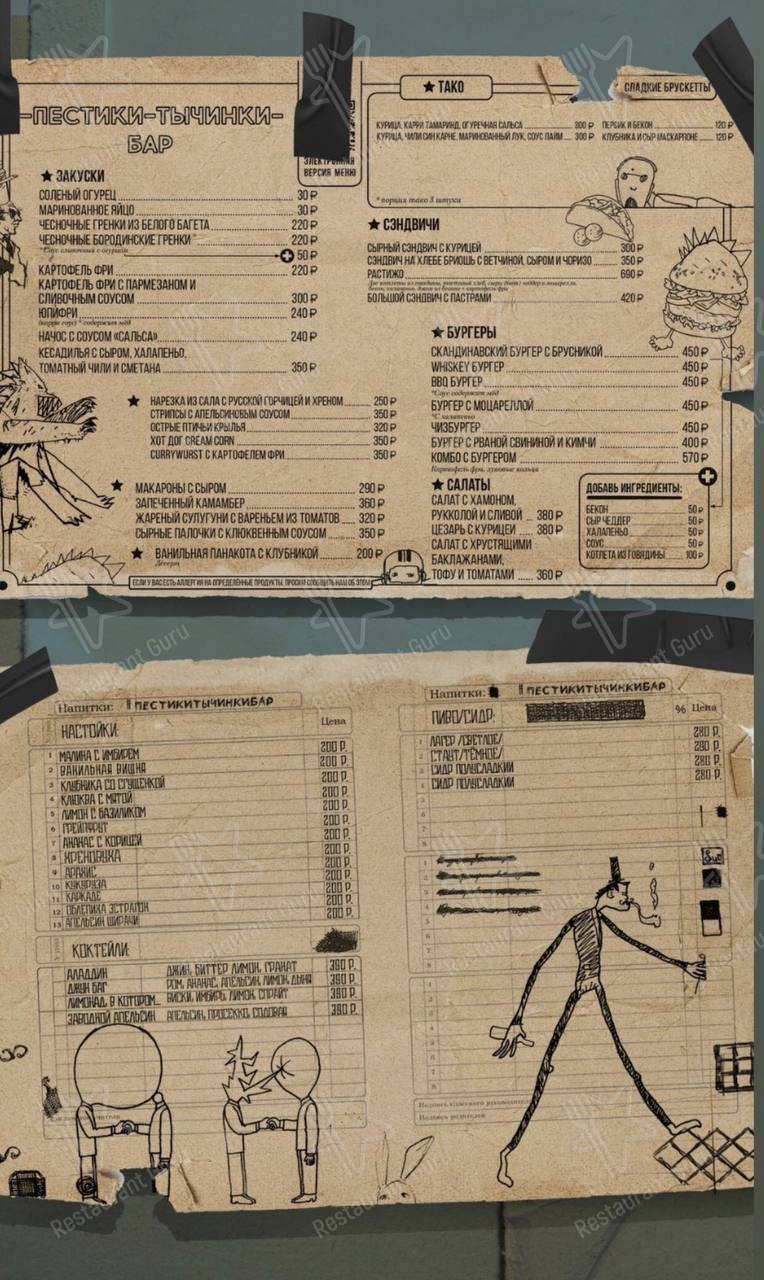 ПЕСТИКИ-ТЫЧИНКИ-
БАР
ЭЛЕКТРОННАЯ
ВЕРСИЯ МЕНЮ
★ ЗАКУСКИ
СОЛЕНЫЙ ОГУРЕЦ 30 ₽
МАРИНОВАННОЕ ЯЙЦО 30 ₽
ЧЕСНОЧНЫЕ ГРЕНКИ ИЗ БЕЛОГО БАГЕТА 220 ₽
ЧЕСНОЧНЫЕ БОРОДИНСКИЕ ГРЕНКИ 220 ₽
*Соус сливочный с огурцом 50 ₽
КАРТОФЕЛЬ ФРИ 220 ₽
КАРТОФЕЛЬ ФРИ С ПАРМЕЗАНОМ И
СЛИВОЧНЫМ СОУСОМ 300 ₽
ЮПИФРИ 240 ₽
(карри соус) * содержит мёд
НАЧОС С СОУСОМ «САЛЬСА» 240 ₽
КЕСАДИЛЬЯ С СЫРОМ, ХАЛАПЕНЬО,
ТОМАТНЫЙ ЧИЛИ И СМЕТАНА 350 ₽
★ НАРЕЗКА ИЗ САЛА С РУССКОЙ ГОРЧИЦЕЙ И ХРЕНОМ 250 ₽
СТРИПСЫ С АПЕЛЬСИНОВЫМ СОУСОМ 350 ₽
ОСТРЫЕ ПТИЧЬИ КРЫЛЬЯ 320 ₽
ХОТ ДОГ CREAM CORN 350 ₽
CURRYWURST С КАРТОФЕЛЕМ ФРИ 350 ₽
★ МАКАРОНЫ С СЫРОМ 290 ₽
ЗАПЕЧЕННЫЙ КАМАМБЕР 360 ₽
ЖАРЕНЫЙ СУЛУГУНИ С ВАРЕНЬЕМ ИЗ ТОМАТОВ 320 ₽
СЫРНЫЕ ПАЛОЧКИ С КЛЮКВЕННЫМ СОУСОМ 350 ₽
★ ВАНИЛЬНАЯ ПАНАКОТА С КЛУБНИКОЙ 200 ₽
Десерт
ЕСЛИ У ВАС ЕСТЬ АЛЛЕРГИЯ НА ОПРЕДЕЛЁННЫЕ ПРОДУКТЫ, ПРОСИМ СООБЩИТЬ НАМ ОБ ЭТОМ
★ ТАКО
КУРИЦА, КАРРИ ТАМАРИНД, ОГУРЕЧНАЯ САЛЬСА 300 ₽
КУРИЦА, ЧИЛИ СИН КАРНЕ, МАРИНОВАННЫЙ ЛУК, СОУС ЛАЙМ 300 ₽
* порция тако 3 штуки
СЛАДКИЕ БРУСКЕТТЫ
ПЕРСИК И БЕКОН 120 ₽
КЛУБНИКА И СЫР МАСКАРПОНЕ 120 ₽
★ СЭНДВИЧИ
СЫРНЫЙ СЭНДВИЧ С КУРИЦЕЙ 300 ₽
СЭНДВИЧ НА ХЛЕБЕ БРИОШЬ С ВЕТЧИНОЙ, СЫРОМ И ЧОРИЗО 350 ₽
РАСТИЖО 690 ₽
БОЛЬШОЙ СЭНДВИЧ С ПАСТРАМИ 420 ₽
★ БУРГЕРЫ
СКАНДИНАВСКИЙ БУРГЕР С БРУСНИКОЙ 450 ₽
WHISKEY БУРГЕР 450 ₽
BBQ БУРГЕР 450 ₽
*Соус содержит мёд
БУРГЕР С МОЦАРЕЛЛОЙ 450 ₽
*С халапеньо
ЧИЗБУРГЕР 450 ₽
БУРГЕР С РВАНОЙ СВИНИНОЙ И КИМЧИ 400 ₽
КОМБО С БУРГЕРОМ 570 ₽
Картофель фри, луковые кольца
★ САЛАТЫ
САЛАТ С ХАМОНОМ,
РУККОЛОЙ И СЛИВОЙ 380 ₽
ЦЕЗАРЬ С КУРИЦЕЙ 380 ₽
САЛАТ С ХРУСТЯЩИМИ
БАКЛАЖАНАМИ,
ТОФУ И ТОМАТАМИ 360 ₽
ДОБАВЬ ИНГРЕДИЕНТЫ:
БЕКОН 50 ₽
СЫР ЧЕДДЕР 50 ₽
ХАЛАПЕНЬО 50 ₽
СОУС 50 ₽
КОТЛЕТА ИЗ ГОВЯДИНЫ 100 ₽
Напитки: ПЕСТИКИТЫЧИНКИБАР
НАСТОЙКИ: Цена
1 МАЛИНА С ИМБИРЕМ 200 Р.
2 ВАНИЛЬНАЯ ВИШНЯ 200 Р.
3 КЛУБНИКА СО СГУЩЕНКОЙ 200 Р.
4 КЛЮКВА С МЯТОЙ 200 Р.
5 ЛИМОН С БАЗИЛИКОМ 200 Р.
6 ГРЕЙПФРУТ 200 Р.
7 АНАНАС С КОРИЦЕЙ 200 Р.
8 ХРЕНОВУХА 200 Р.
9 АРАХИС 200 Р.
10 КУКУРУЗА 200 Р.
11 КАРКАДЕ 200 Р.
12 ОБЛЕПИХА ЭСТРАГОН 200 Р.
13 АПЕЛЬСИН ШИРАЧИ 200 Р.
КОКТЕЙЛИ:
АЛАДДИН ДЖИН, БИТТЕР ЛИМОН, ГРАНАТ 390 Р.
ДЖУН БАГ РОМ, АНАНАС, АПЕЛЬСИН, ЛИМОН, ДЫНЯ 390 Р.
ЛИМОНАД, В КОТОРОМ... ВИСКИ, ИМБИРЬ, ЛИМОН, СПРАЙТ 390 Р.
ЗАВОДНОЙ АПЕЛЬСИН АПЕЛЬСИН, ПРОСЕККО, СОДОВАЯ 390 Р.
Напитки: ПЕСТИКИТЫЧИНКИБАР
ПИВО/СИДР: % Цена
1 ЛАГЕР /СВЕТЛОЕ/ 280 Р.
2 СТАУТ/ТЁМНОЕ/ 290 Р.
3 СИДР ПОЛУСЛАДКИЙ 280 Р.
4 СИДР ПОЛУСЛАДКИЙ 280 Р.
Подпись классного руководителя
Подпись родителей
Restaurant Guru